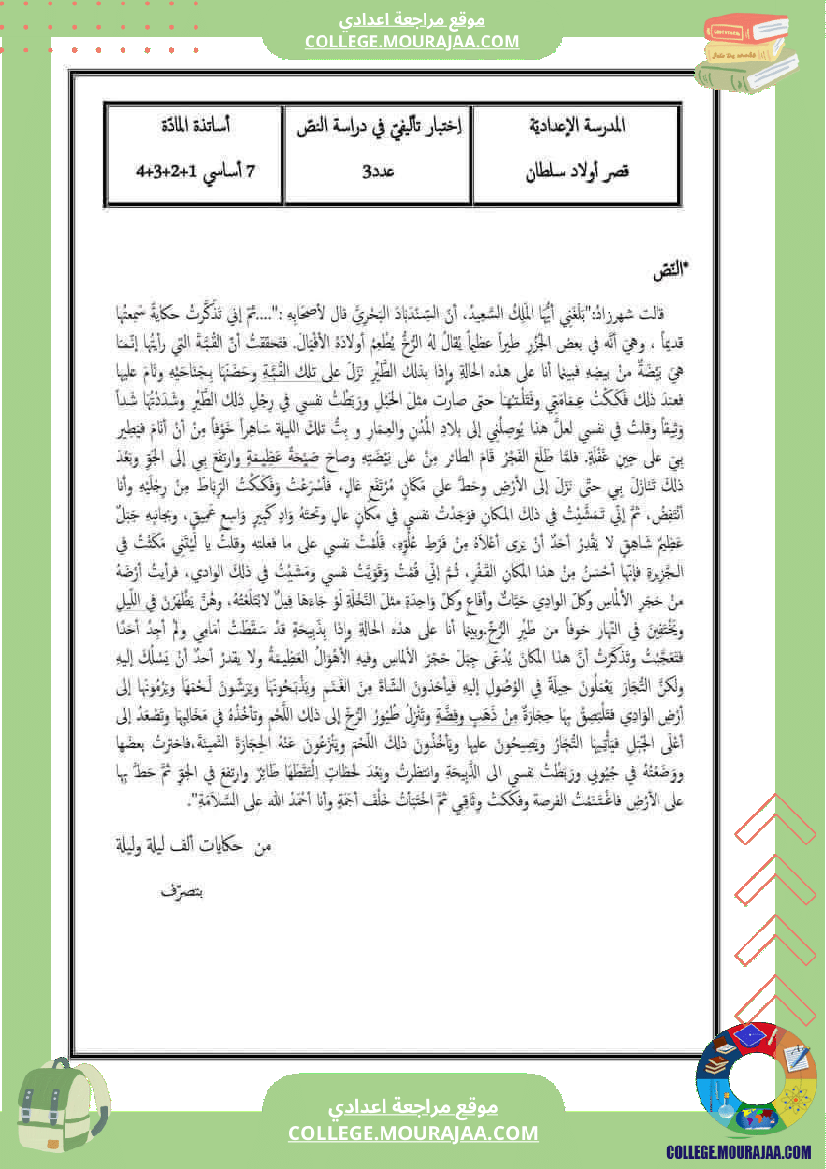 موقع مراجعة اعدادي
COLLEGE.MOURAJAA.COM
المدرسة الإعداديّة
قصر أولاد سلطان
إختبار تأليفيّ في دراسة النصّ
عدد3
أساتذة المادّة
7 أساسي 1+2+3+4
*النّصّ
قالت شهرزادُ:"بَلَغَنِي أيُّهَا المَلِكُ السَّعِيدُ، أنّ السِّنْدَبَادَ البَحْرِيَّ قال لأصحَابِهِ :"....ثمّ إني تَذَكَّرتُ حكايةً سَمِعتُها
قديماً ، وهيَ أنَّه في بعض الجُزُرِ طيراً عظيماً يُقالُ لهُ الرُخُّ يُطْعِمُ أولادَهُ الأفْيَالَ. فتَحققتُ أنّ القُبَّةَ التي رأيتُها إنّمَا
هيَ بَيْضَةٌ منْ بيضِهِ فبينما أنا على هذه الحالةِ وإذا بذلك الطَّيْرِ نَزَلَ على تلك القُبَّةِ وحَضَنَها بِجَنَاحَيْهِ ونَامَ عليها
فعندَ ذلك فَكَكْتُ عِمَامَتِي وفَتَلْتُهَا حتى صارت مثلَ الحَبْلِ ورَبَطْتُ نفسي في رِجْلِ ذلك الطَّيْرِ وشَدَدْتُهَا شَداً
وَثِيقاً وقلتُ في نفسي لعلَّ هذا يُوصِلُنِي إلى بلادِ المُدُنِ والعِمَارِ و بِتُّ تلكَ الليلة سَاهِراً خَوْفاً مِنْ أنْ أنَامَ فيَطِير
بِيَ على حِينِ غَفْلَةٍ. فلمَّا طَلَعَ الفَجْرُ قَامَ الطائر مِنْ على بَيْضَتِهِ وصاحَ صَيْحَةً عَظِيمَةً وارتفعَ بِي إلى الجَوِّ وبَعْدَ
ذلكَ تَنَازَلَ بِي حتَّى نَزَلَ إلى الأرْضِ وحَطَّ على مَكَانٍ مُرْتَفَعٍ عَالٍ، فأسْرَعْتُ وفَكَكْتُ الرِبَاطَ مِنْ رِجْلَيْهِ وأنا
أنْتَفِضُ، ثمَّ إنّي تَمَشَّيْتُ في ذلكَ المكانِ فوَجَدْتُ نفسي في مَكانٍ عالٍ وتحتَهُ وَادٍ كَبِيرٍ وَاسِعٍ عَمِيقٍ، وبِجانبِهِ جَبَلٌ
عَظِيمٌ شاهِقٍ لا يَقْدِرُ أحَدٌ أنْ يرى أعْلاهُ مِنْ فَرْطِ عُلُوِّهِ، فَلُمْتُ نفسي على ما فعلته وقلتُ يا لَيْتَنِي مَكَثْتُ في
الجَزِيرةِ فإنّها أحْسَنُ مِنْ هذا المَكَانِ القَفْرِ، ثُمَّ إنّي قُمْتُ وقَوَّيْتُ نفسي ومَشَيْتُ في ذلكَ الوادي، فرأيتُ أرْضَهُ
منْ حَجَرِ الألْمَاسِ وكلّ الوادي حَيَّاتٌ وأفَاعٍ وكلّ وَاحِدَةٍ مثلَ النَّخْلَةِ لَوْ جَاءَهَا فِيلٌ لابْتَلَعَتْهُ، وهُنَّ يَظْهَرْنَ في اللّيلِ
ويَخْتَفِينَ في النّهارِ خوفاً من طَيْرِ الرُخِّ.وبينما أنا على هذه الحالةِ وإذَا بِذَبِيحَةٍ قدْ سَقَطَتْ أمَامِي ولمْ أجِدْ أحَدًا
فتَعَجَّبْتُ وتَذَكَّرْتُ أنَّ هذا المكانَ يُدْعَى جَبَلَ حَجَرِ الألماسِ وفيهِ الأهْوَالُ العَظِيمَةُ ولا يقدرُ أحدٌ أنْ يَسْلُكَ إليهِ
ولكنَّ التُجّارَ يَعْمَلُونَ حِيلَةً في الوُصُولِ إليهِ فيأخذونَ الشّاةَ مِنَ الغَنَمِ ويَذْبَحُونَهَا ويَرُشّونَ لَحْمَهَا ويَرْمُونَها إلى
أرْضِ الوَادِي فتَلْتَصِقُ بِهَا حِجَارَةٌ مِنْ ذَهَبٍ وفِضَّةٍ وتَنْزِلُ طُيُورُ الرُخِّ إلى ذلك اللَّحْمِ وتَأخُذُهُ في مَخَالِبِهَا وتَصْعَدُ إلى
أعْلَى الجَبَلِ فيَأتِيهَا التُّجَارُ ويَصِيحُونَ عليها ويَأخُذُونَ ذلكَ اللّحْمَ ويَنْزِعُونَ عَنْهُ الحِجَارَةَ الثَّمِينَةَ،فاخترتُ بعضَها
ووَضَعْتُهُ في جُيُوبِي ورَبَطْتُ نفسي الى الذَّبِيحَةِ وانتظرتُ وبَعْدَ لحظَاتٍ اِلْتَقَطَهَا طَائِرٌ وارتفعَ في الجَوِّ ثمَّ حَطَّ بِها
على الأرْضِ فاغْتَنَمْتُ الفرصة وفككتُ وِثَاقِي ثمَّ اخْتَبَأتُ خَلْفَ أجَمَةٍ وأنا أحْمَدُ الله على السَّلاَمَةِ".
من حكايات ألف ليلة وليلة
بتصرّف
موقع مراجعة اعدادي
COLLEGE.MOURAJAA.COM
COLLEGE.MOURAJAA.COM